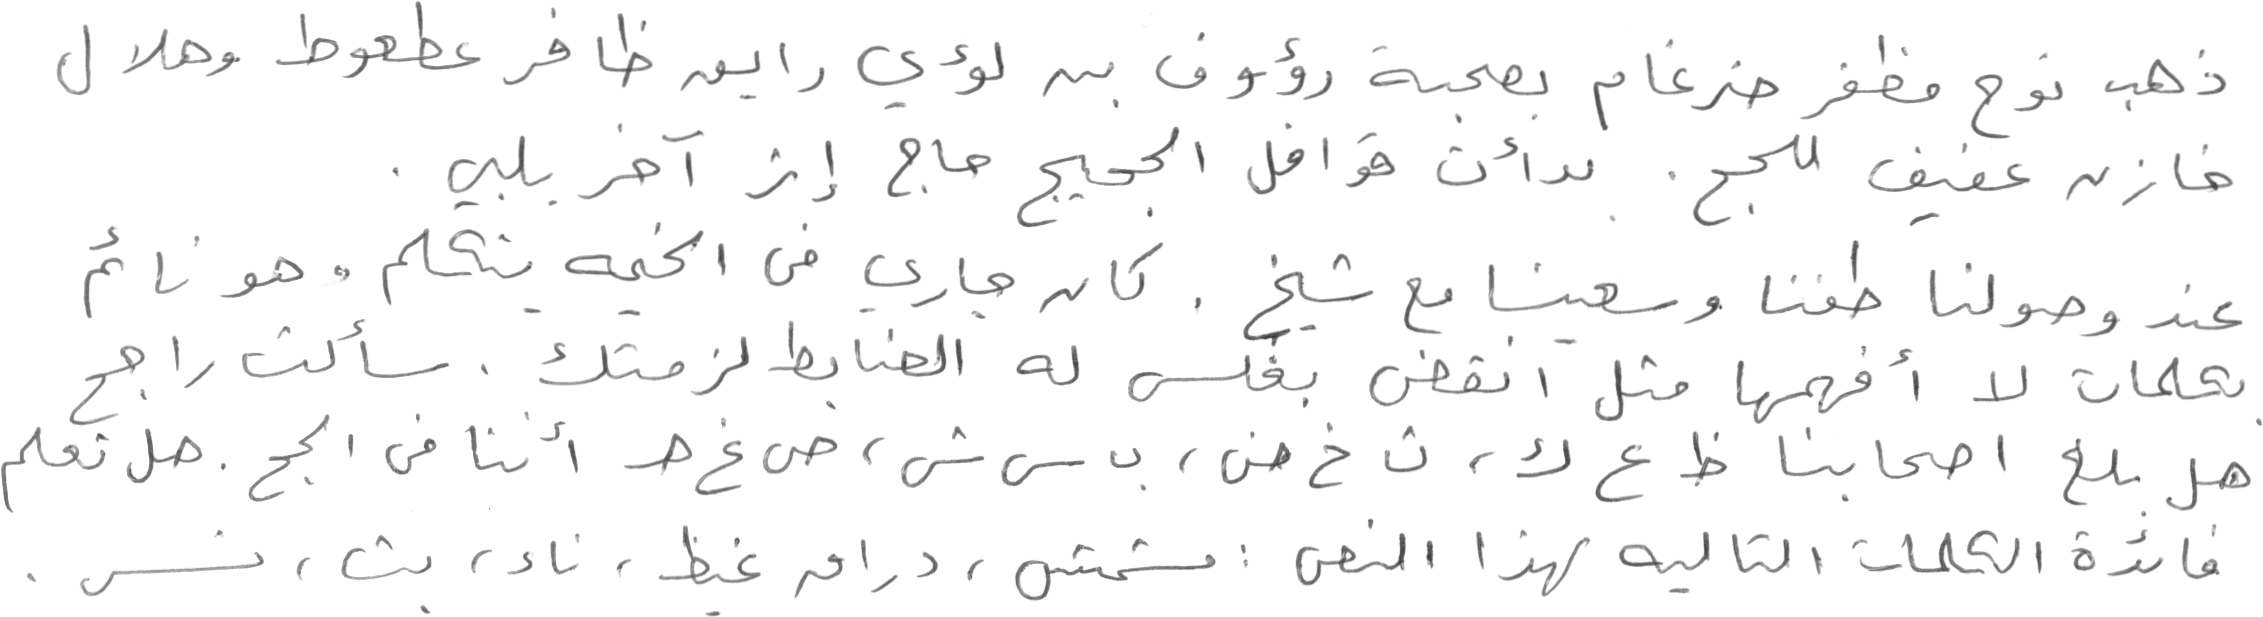 ذهب نوح مظفر ضرغام بصحبة رؤوف بن لؤي رايق ظافر عطعوط وهلال
خازن عفيف للحج . بدأت قوافل الحجيج حاج إثر آخر يلبي .
عند وصولنا طفنا وسعينا مع شيخ . كان جاري في الخيمه يتكلم وهو نائم
بكلمات لا أفهمها مثل انقض بغلس له الضابط لزمتك . سألت راجح
هل بلغ اصحابنا ظ ع ك ، ث خ ض ، ب س ش ، ض غ ص أننا في الحج . هل تعلم
فائدة الكلمات التاليه لهذا النص : مشمش ، دراق غيظ ، ناء ، بث ، نس .